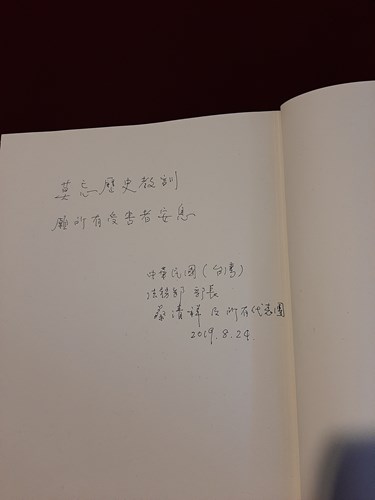 莫忘歷史教訓
願所有受害者安息
中華民國(台灣)
法務部 部長
蔡清祥及所有代表團
2019.8.24.